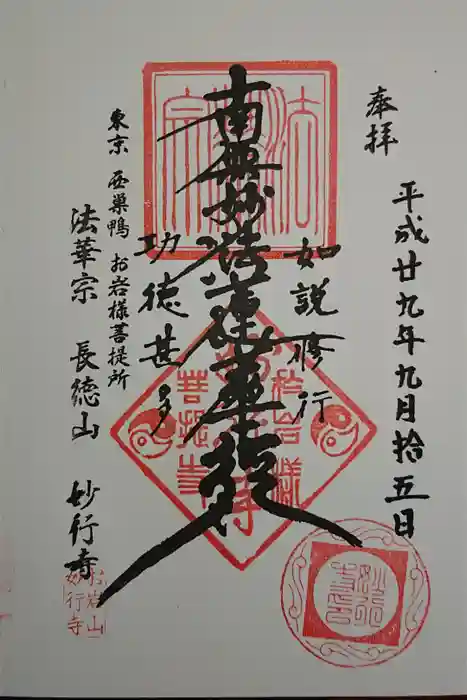 奉拝
平成廿九年九月拾五日
如説修行
南無妙法蓮華経
功徳甚多
東京 西巣鴨 お岩様菩提所
法華宗 長徳山 妙行寺
お岩様
菩提寺
妙行寺
お岩山
妙行寺